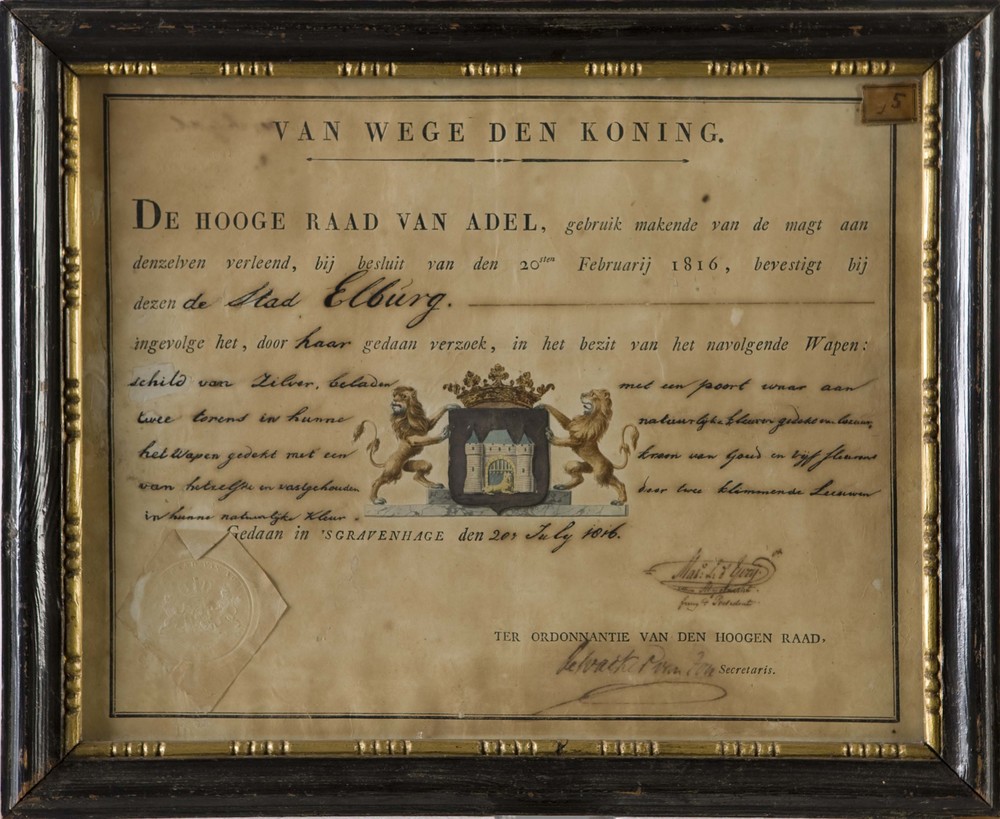 15
VAN WEGE DEN KONING.
DE HOOGE RAAD VAN ADEL, gebruik makende van de magt aan
denzelven verleend, bij besluit van den 20sten Februarij 1816, bevestigt bij
dezen de Stad Elburg.
ingevolge het, door haar gedaan verzoek, in het bezit van het navolgende Wapen:
schild van Zilver, beladen met een poort waar aan
twee torens in hunne natuurlijke kleuren gedekt
het Wapen gedekt met een kroon van Goud en vijf fleurons
van hetzelfde en vastgehouden door twee klimmende Leeuwen
in hunne natuurlijke Kleur.
Gedaan in 'SGRAVENHAGE den 20n July 1816.
TER ORDONNANTIE VAN DEN HOOGEN RAAD,
Secretaris.